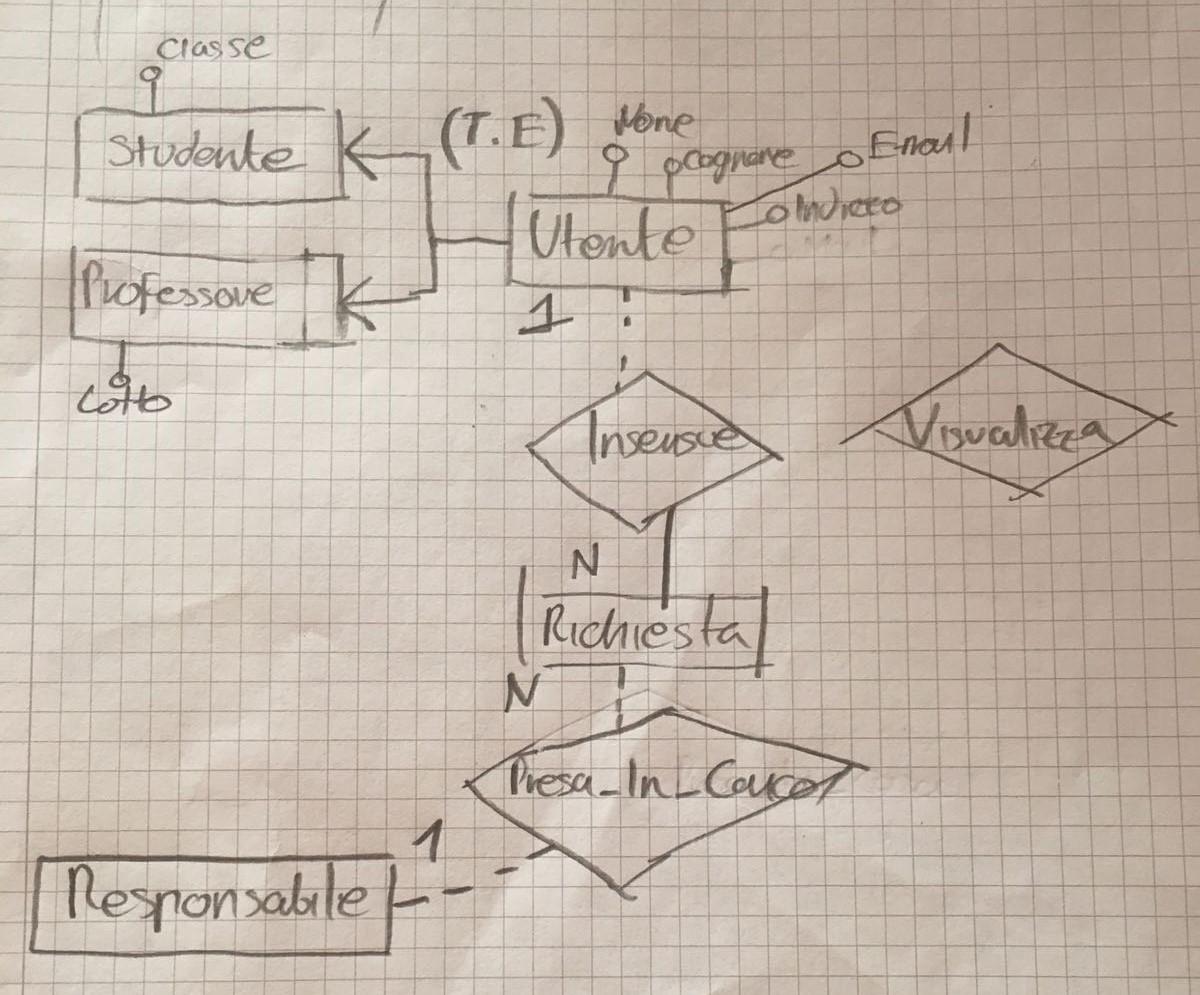 classe
Studente
(T.E)
Nome
Cognome
Email
Indirizzo
Utente
Professore
1
Inserisce
Visualizza
N
Richiesta
N
Presa_In_Carico
1
Responsabile